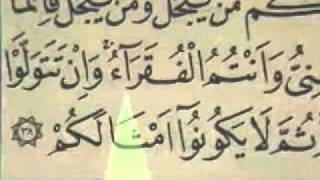 كُمْ مَنْ يَبْخَلُ وَمَنْ يَبْخَلْ فَاِنَّمَا
نِىُّ وَاَنْتُمُ الْفُقَرَٓاءُۚ وَاِنْ تَتَوَلَّوْا
ثُمَّ لَا يَكُونُٓوا اَمْثَالَكُمْ ﴿٣٨﴾